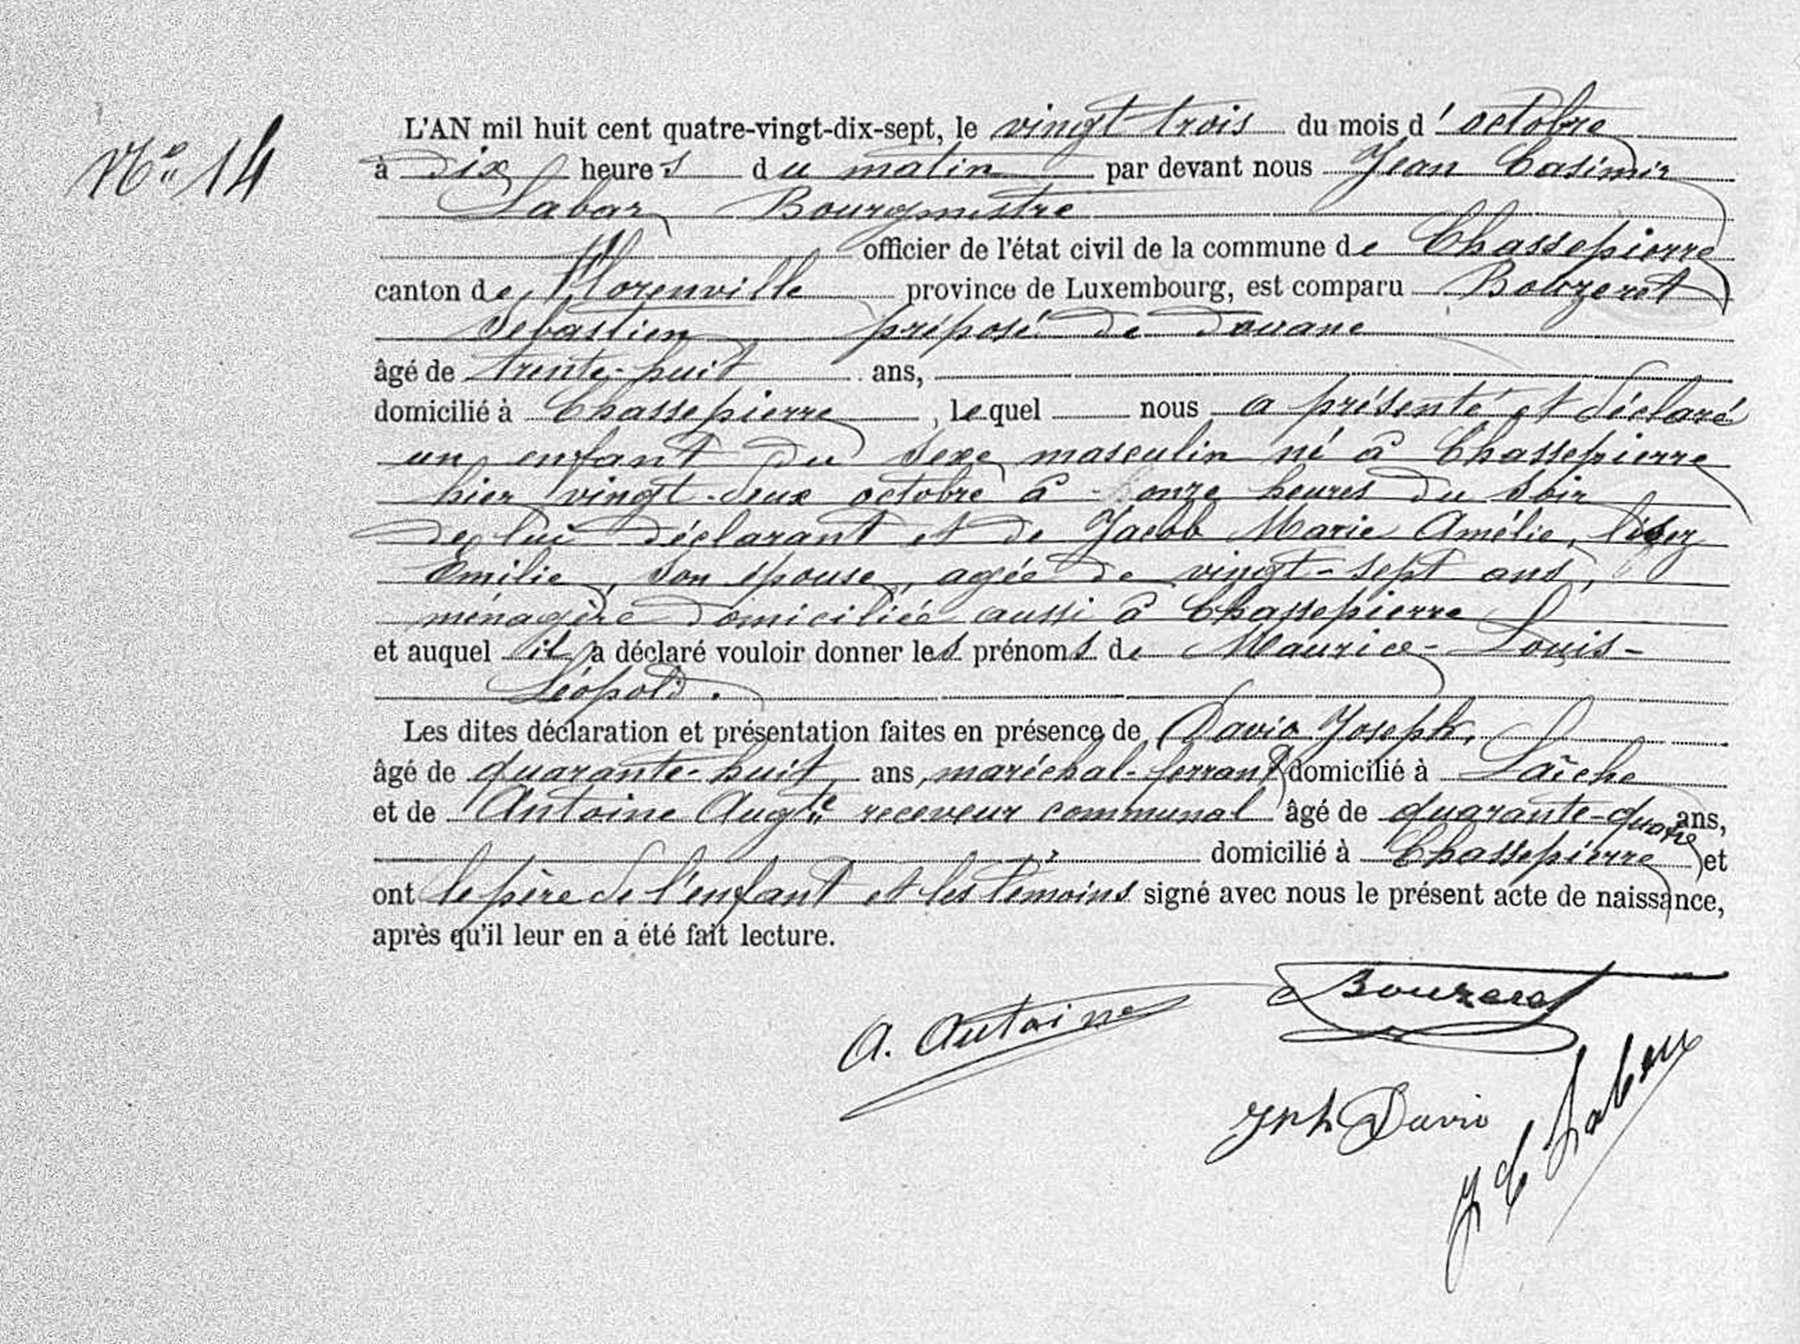 N° 14
L'AN mil huit cent quatre-vingt-dix-sept, le vingt trois du mois d'octobre
à dix heures du matin par devant nous Jean Casimir
Labar Bourgmestre
officier de l'état civil de la commune de Chassepierre
canton de Florenville province de Luxembourg, est comparu Bouzeret
Sébastien préposé de douane
âgé de trente-huit ans,
domicilié à Chassepierre, lequel nous a présenté et déclaré
un enfant du sexe masculin né à Chassepierre
hier vingt-deux octobre à onze heures du soir
de lui déclarant et de Jacob Marie Amélie, lisez
Emilie, son épouse, agée de vingt-sept ans,
ménagère domiciliée aussi à Chassepierre
et auquel il a déclaré vouloir donner les prénoms de Maurice-Louis-
Léopold.
Les dites déclaration et présentation faites en présence de David Joseph,
âgé de quarante-huit ans, maréchal-ferrant domicilié à Laiche
et de Antoine Augte receveur communal âgé de quarante-quatre ans,
domicilié à Chassepierre et
ont le père de l'enfant et les témoins signé avec nous le présent acte de naissance,
après qu'il leur en a été fait lecture.
A. Antoine
Bouzeret
Jph David
J C Labar